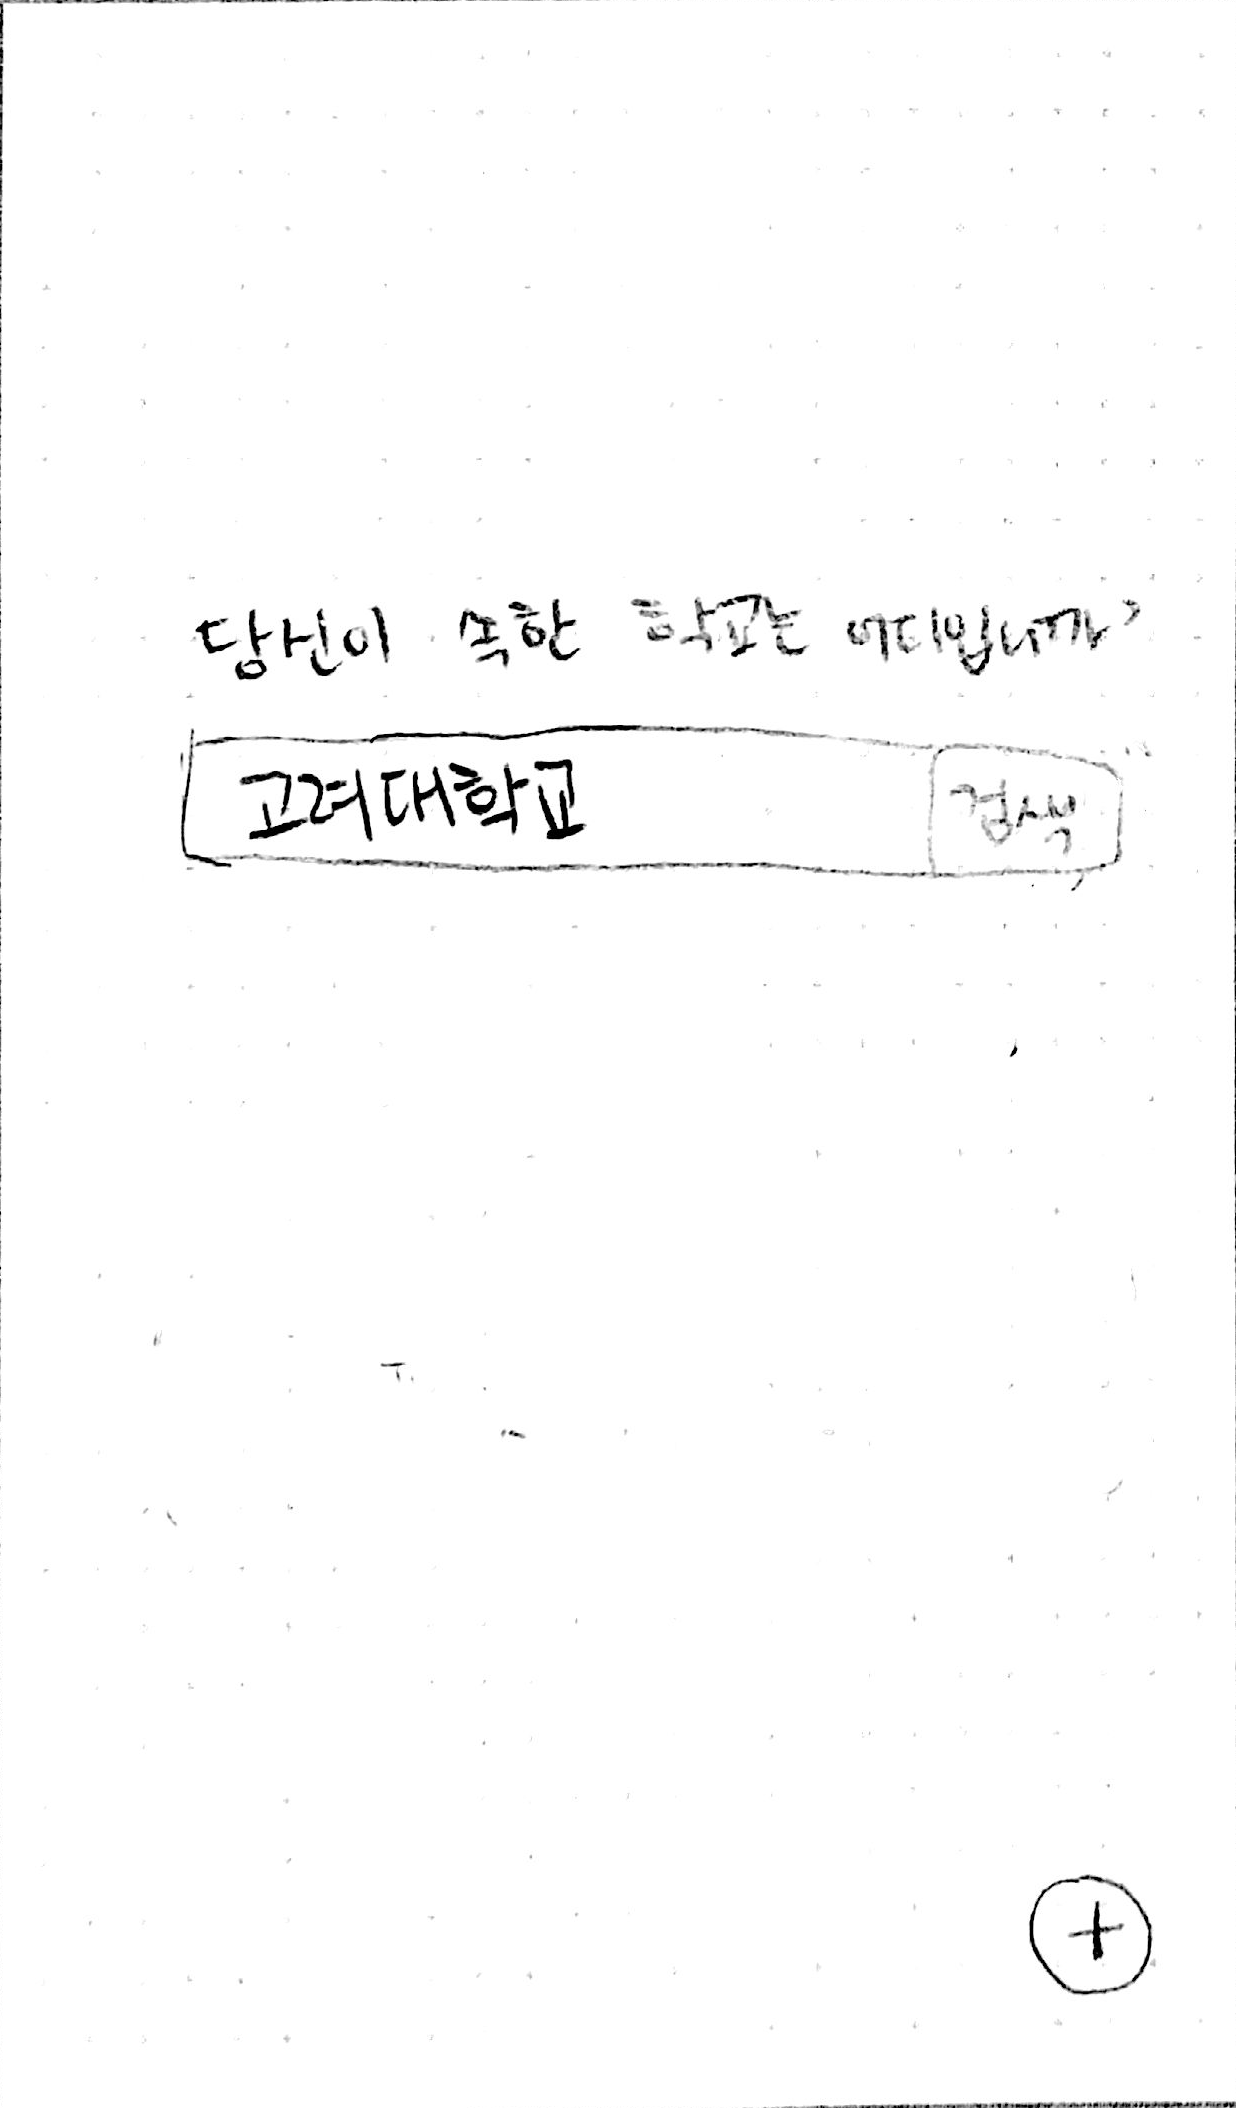 당신이 속한 학교는 어디입니까?
고려대학교 검색
+